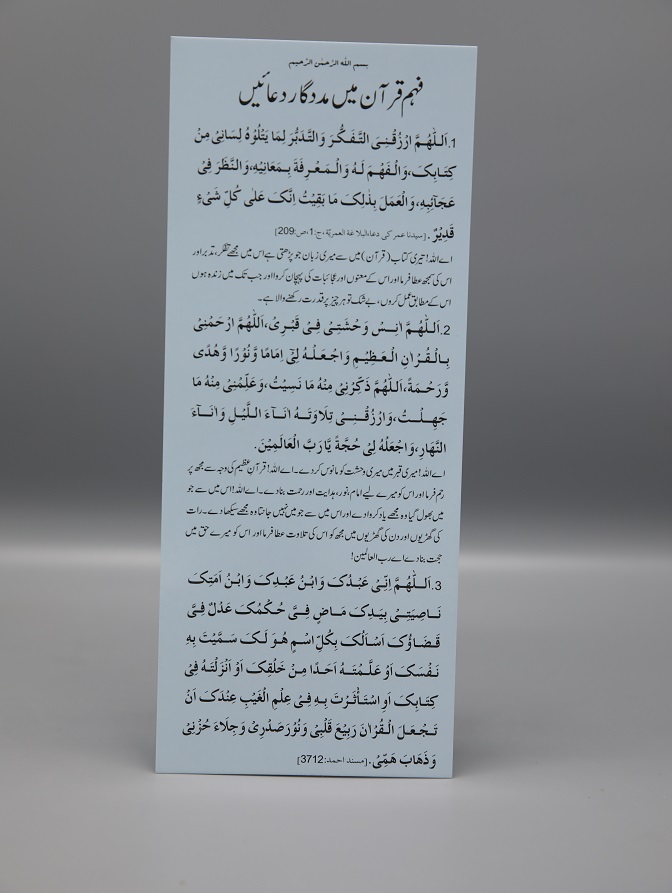 بسم الله الرّحمٰن الرّحیم
فہم قرآن میں مددگار دعائیں
1. اَللّٰهُمَّ ارْزُقْنِیَ التَّفَکُّرَ وَالتَّدَبُّرَ لِمَا یَتْلُوْهُ لِسَانِیْ مِنْ
کِتَابِکَ، وَالْفَهْمَ لَهُ وَالْمَعْرِفَةَ بِمَعَانِیْهِ، وَالنَّظَرَ فِیْ
عَجَآئِبِهِ، وَالْعَمَلَ بِذٰلِکَ مَا بَقِیْتُ اِنَّکَ عَلٰی کُلِّ شَیْءٍ
قَدِیْرٌ. [سیدنا عمر کی دعا، البلاغة العمریّة، ج:1، ص:209]
اے اللہ! تیری کتاب (قرآن) میں سے میری زبان جو پڑھتی ہے اس میں مجھے تفکر، تدبر اور
اس کی سمجھ عطا فرما اور اس کے معنوں اور عجائبات کی پہچان کروا اور جب تک میں زندہ ہوں
اس کے مطابق عمل کروں، بے شک تو ہر چیز پر قدرت رکھنے والا ہے۔
2. اَللّٰهُمَّ اٰنِسْ وَحْشَتِیْ فِیْ قَبْرِیْ، اَللّٰهُمَّ ارْحَمْنِیْ
بِالْقُرْاٰنِ الْعَظِیْمِ وَاجْعَلْهُ لِیْ اِمَامًا وَّنُوْرًا وَّهُدًی
وَّرَحْمَةً، اَللّٰهُمَّ ذَکِّرْنِیْ مِنْهُ مَا نَسِیْتُ، وَعَلِّمْنِیْ مِنْهُ مَا
جَهِلْتُ، وَارْزُقْنِیْ تِلَاوَتَهُ اٰنَآءَ الَّلیْلِ وَاٰنَآءَ
النَّهَارِ، وَاجْعَلْهُ لِیْ حُجَّةً یَّارَبَّ الْعَالَمِیْنَ.
اے اللہ! میری قبر میں میری وحشت کو مانوس کر دے۔ اے اللہ! قرآن عظیم کی وجہ سے مجھ پر
رحم فرما اور اس کو میرے لیے امام، نور، ہدایت اور رحمت بنا دے۔ اے اللہ! اس میں سے جو
میں بھول گیا وہ مجھے یاد کروا دے اور اس میں سے جو میں نہیں جانتا وہ مجھے سیکھا دے۔ رات
کی گھڑیوں اور دن کی گھڑیوں میں مجھ کو اس کی تلاوت عطا فرما اور اس کو میرے حق میں
حجت بنا دے اے رب العالمین!
3. اَللّٰهُمَّ اِنِّیْ عَبْدُکَ وَابْنُ عَبْدِکَ وَابْنُ اَمَتِکَ
نَاصِیَتِیْ بِیَدِکَ مَاضٍ فِیَّ حُکْمُکَ عَدْلٌ فِیَّ
قَضَاؤُکَ اَسْاَلُکَ بِکُلِّ اسْمٍ هُوَ لَکَ سَمَّیْتَ بِهِ
نَفْسَکَ اَوْ عَلَّمْتَهُ اَحَدًا مِنْ خَلْقِکَ اَوْ اَنْزَلْتَهُ فِیْ
کِتَابِکَ اَوِ اسْتَأْثَرْتَ بِهِ فِیْ عِلْمِ الْغَیْبِ عِنْدَکَ اَنْ
تَجْعَلَ الْقُرْاٰنَ رَبِیْعَ قَلْبِیْ وَنُوْرَ صَدْرِیْ وَجِلَاءَ حُزْنِیْ
وَذَهَابَ هَمِّیْ. [مسند احمد:3712]